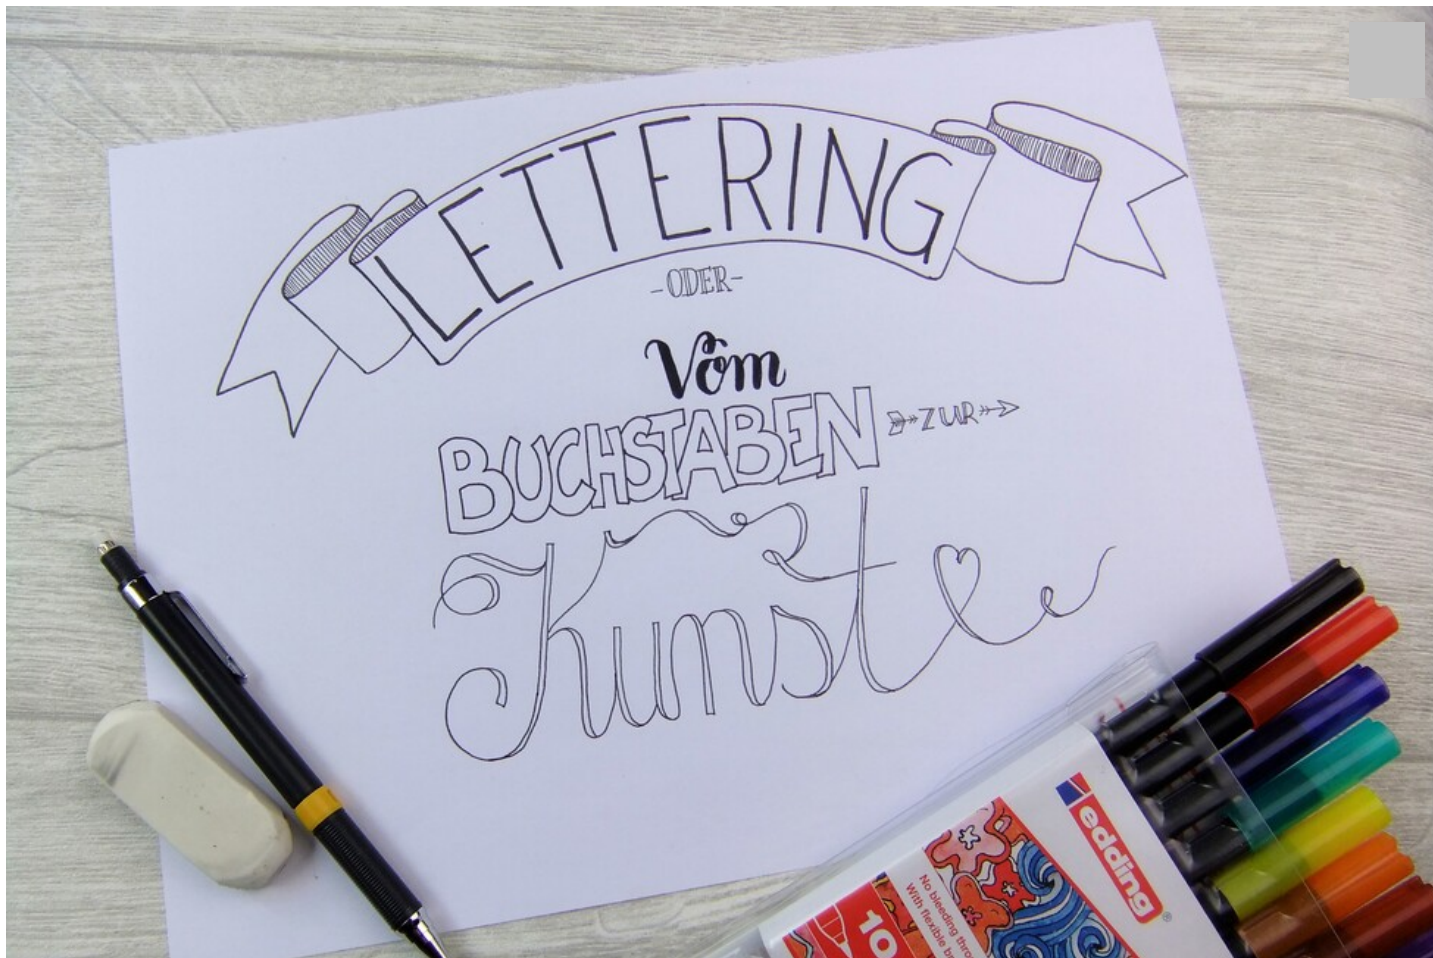 LETTERING
-ODER-
Vom
BUCHSTABEN ZUR
Kunst
edding
®
No bleeding thro
With flexible b
10